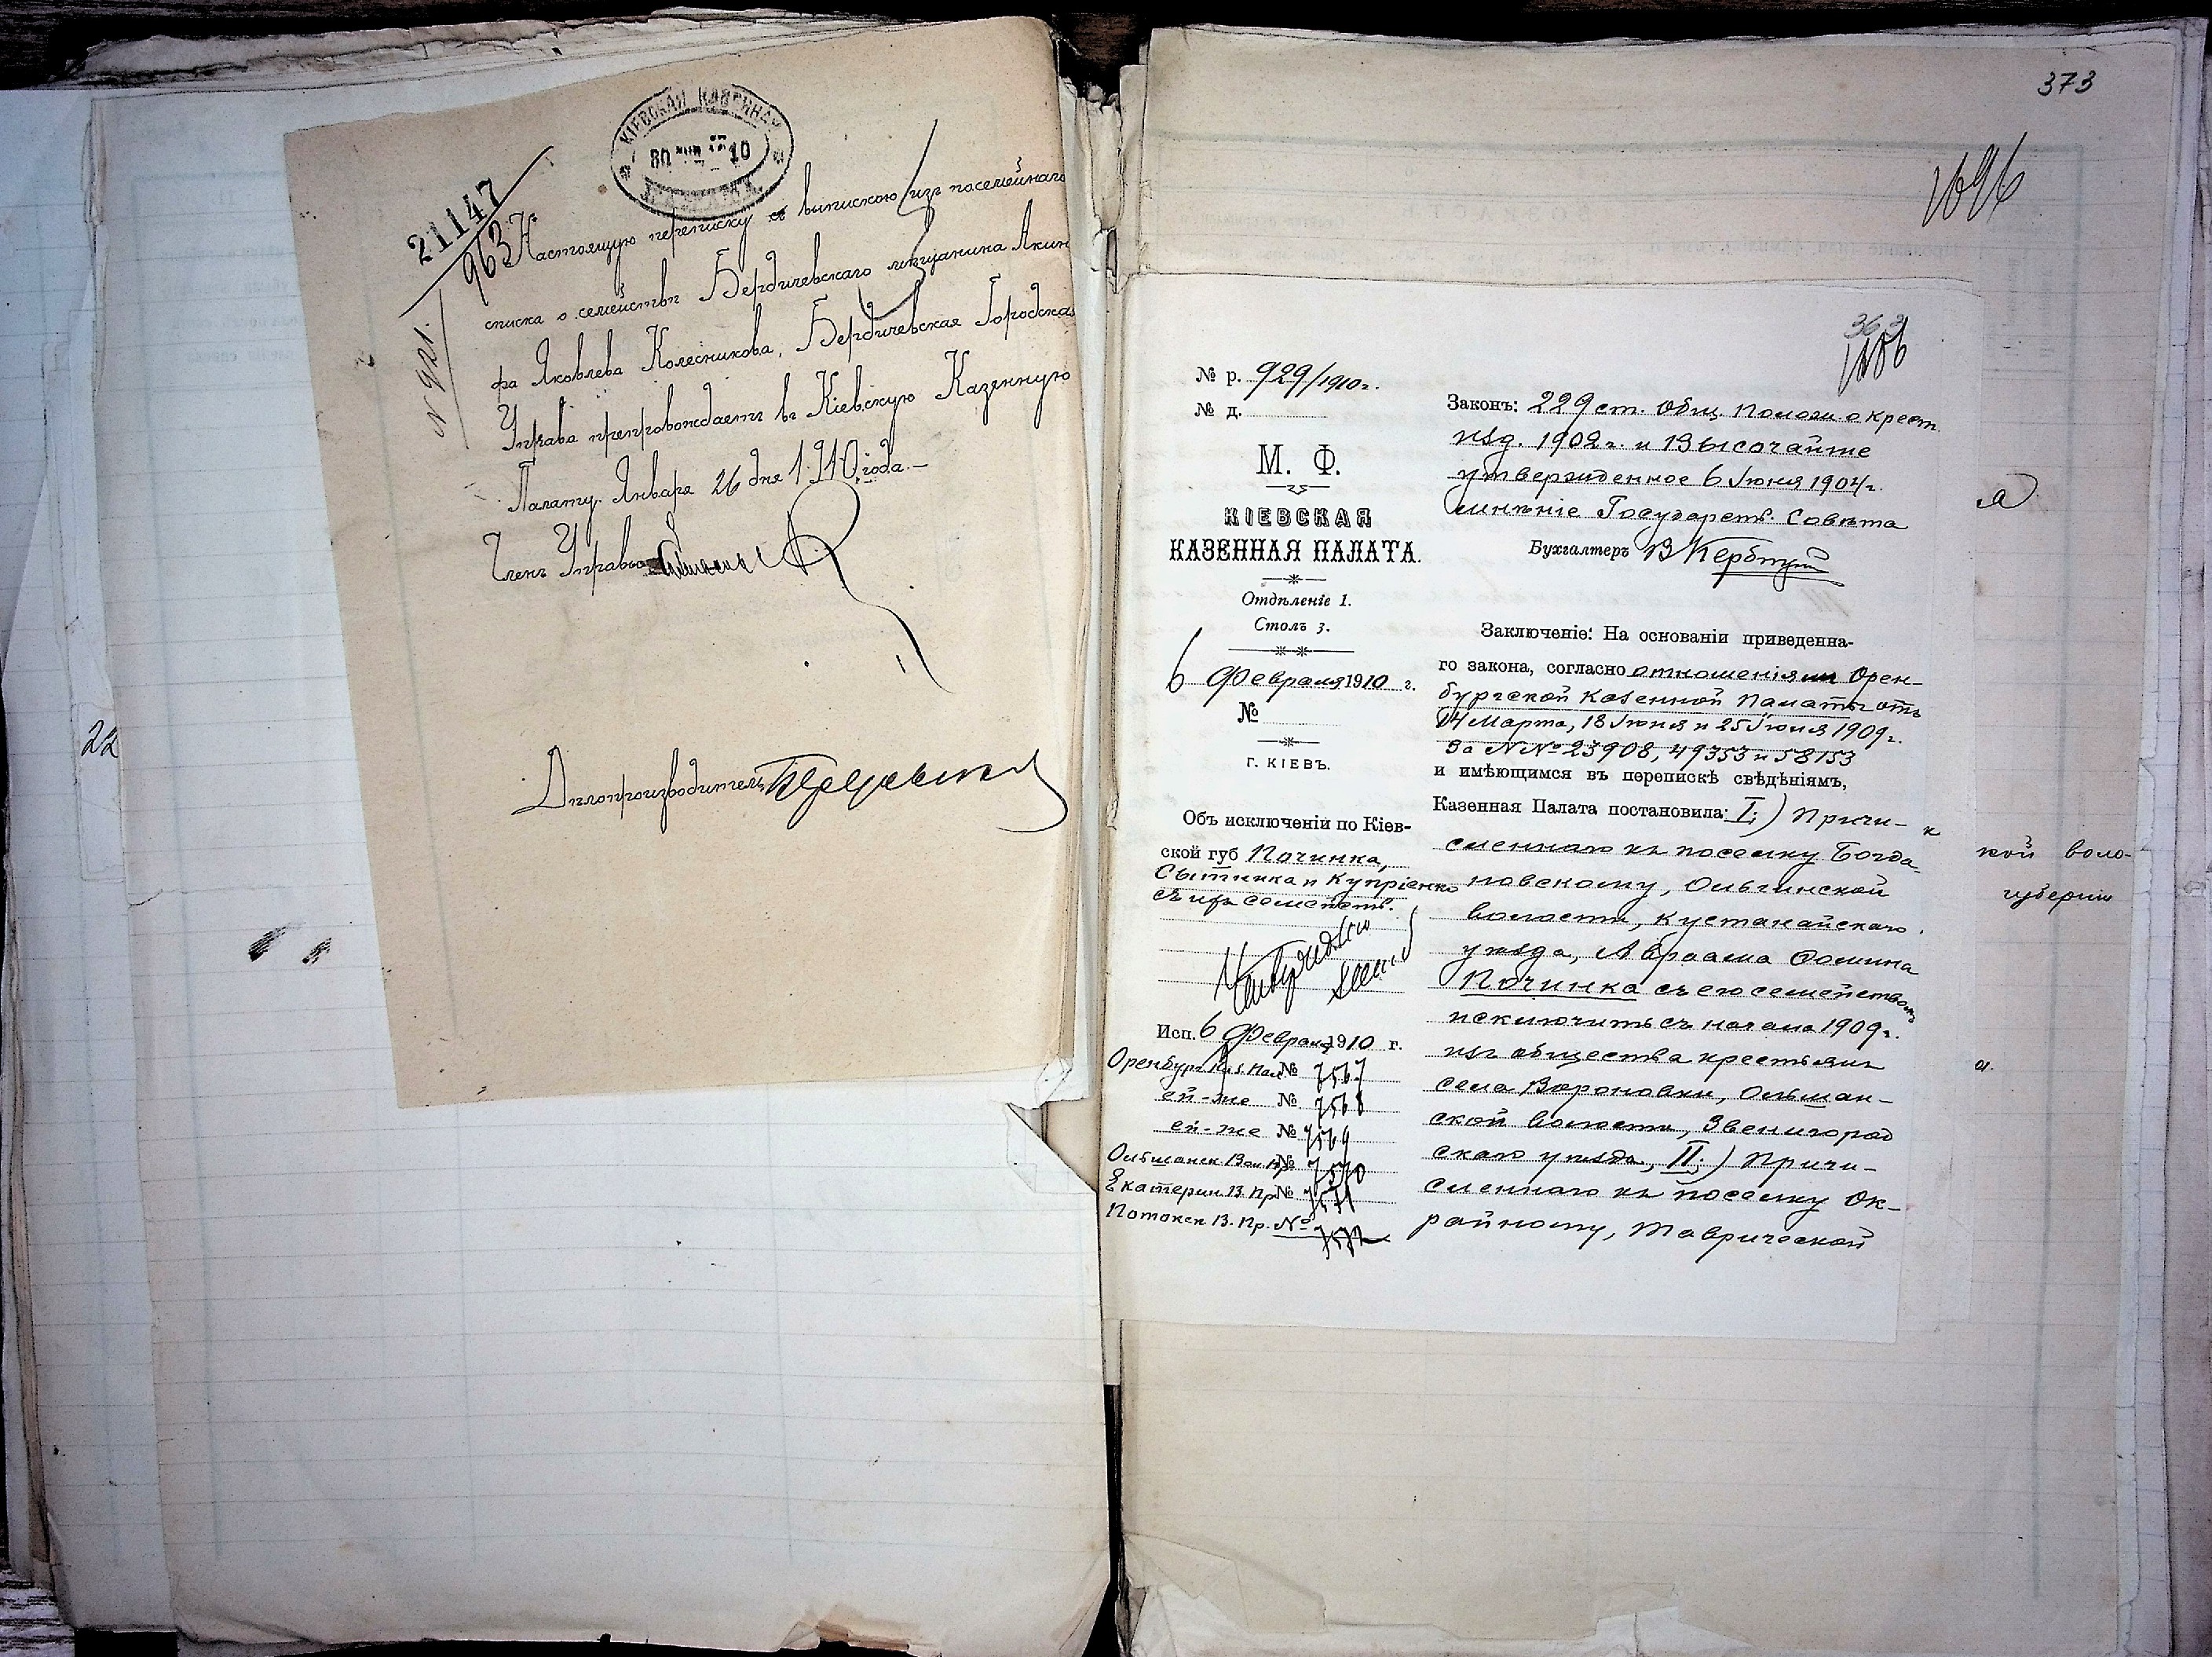 КІЕВСКАЯ КАЗЕННАЯ
30 10
21147
963
N 921.
Настоящую переписку съ выпискою изъ посемейнаго
списка о семействѣ Бердичевскаго мѣщанина Акин
фа Яковлева Колесникова, Бердичевская Городская
Управа препровождаетъ въ Кіевскую Казенную
Палату. Января 26 дня 1910 года.—
Членъ Управы
Дѣлопроизводитель
22
373
1696
№ р. 929/1910г.
№ д.
М. Ф.
КІЕВСКАЯ
КАЗЕННАЯ ПАЛАТА.
Отдѣленіе 1.
Столъ 3.
6 Февраля 1910 г.
№
Г. КІЕВЪ.
Объ исключеніи по Кіев-
ской губ Починка,
Сытника и Купріенко
съ ихъ семейств.
Исп. 6 Февраля 1910 г.
Оренбург. Каз. Пал. № 7567
ей-же № 7568
ей-же № 7569
Ольшанск. Вол. Пр. № 7570
Екатерин. В. Пр. № 7571
Потокск. В. Пр. № 7572
Законъ: 229 ст. Общ. Полож. о крест.
изд. 1902 г. и Высочайше
утвержденное 6 Іюня 1904 г.
мнѣніе Государств. Совѣта
Бухгалтеръ
Заключеніе: На основаніи приведенна-
го закона, согласно отношеніям Орен-
бургской Казенной Палаты отъ
14 Марта, 18 Іюня и 25 Іюля 1909 г.
за N№ 23908, 49353 и 58153
и имѣющимся въ перепискѣ свѣдѣніямъ,
Казенная Палата постановила: I.) Причи-
сленнаго къ поселку Богда
новскому, Ольгинской
волости, Кустанайскаго
уѣзда, Авраама Фомина
Починка съ его семействомъ
исключить съ начала 1909 г.
изъ общества крестьянъ
села Вороновки, Ольшан-
ской волости, Звенигород
скаго уѣзда, II.) Причи-
сленнаго къ поселку Ок-
райному, Таврической
я
кой воло-
губерніи
а.